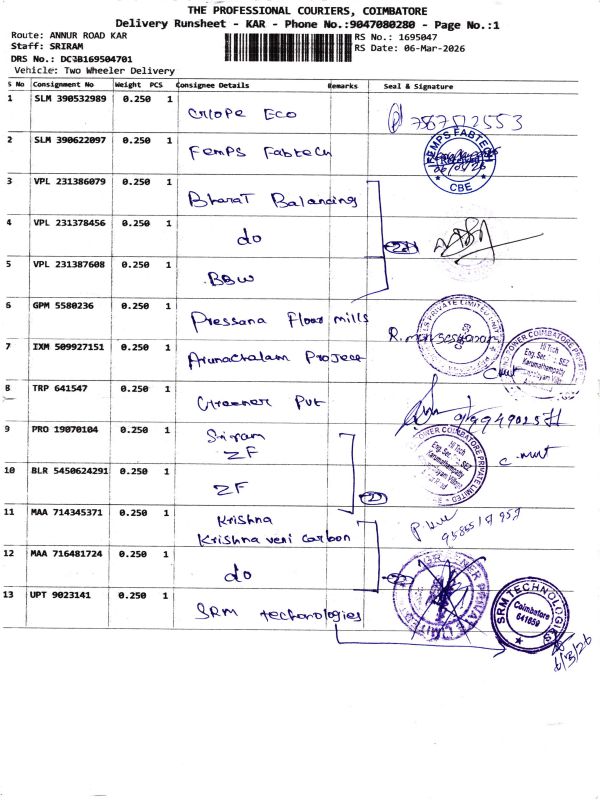 THE PROFESSIONAL COURIERS, COIMBATORE
Delivery Runsheet - KAR - Phone No.:9047080280 - Page No.:1
Route: ANNUR ROAD KAR
RS No.: 1695047
Staff: SRIRAM
RS Date: 06-Mar-2026
DRS No.: DC3B169504701
Vehicle: Two Wheeler Delivery
S No Consignment No Weight PCS Consignee Details Remarks Seal & Signature
1 SLM 390532989 0.250 1 Eco
2 SLM 390622097 0.250 1 Femps Fabtech
06/03/26
CBE
3 VPL 231386079 0.250 1 Bharat Balancing
4 VPL 231378456 0.250 1 do
5 VPL 231387608 0.250 1 BBW
6 GPM 5580236 0.250 1 Pressana Flour mills
7 IXM 509927151 0.250 1 Arunachalam Project
8 TRP 641547 0.250 1 Greener Pvt
9 PRO 19070104 0.250 1 Sriram
ZF
10 BLR 5450624291 0.250 1 ZF
11 MAA 714345371 0.250 1 Krishna
Krishna veni carbon
12 MAA 716481724 0.250 1 do
13 UPT 9023141 0.250 1 SRM technologies
SRM TECHNOLOGIES
Coimbatore
641659
6/3/26